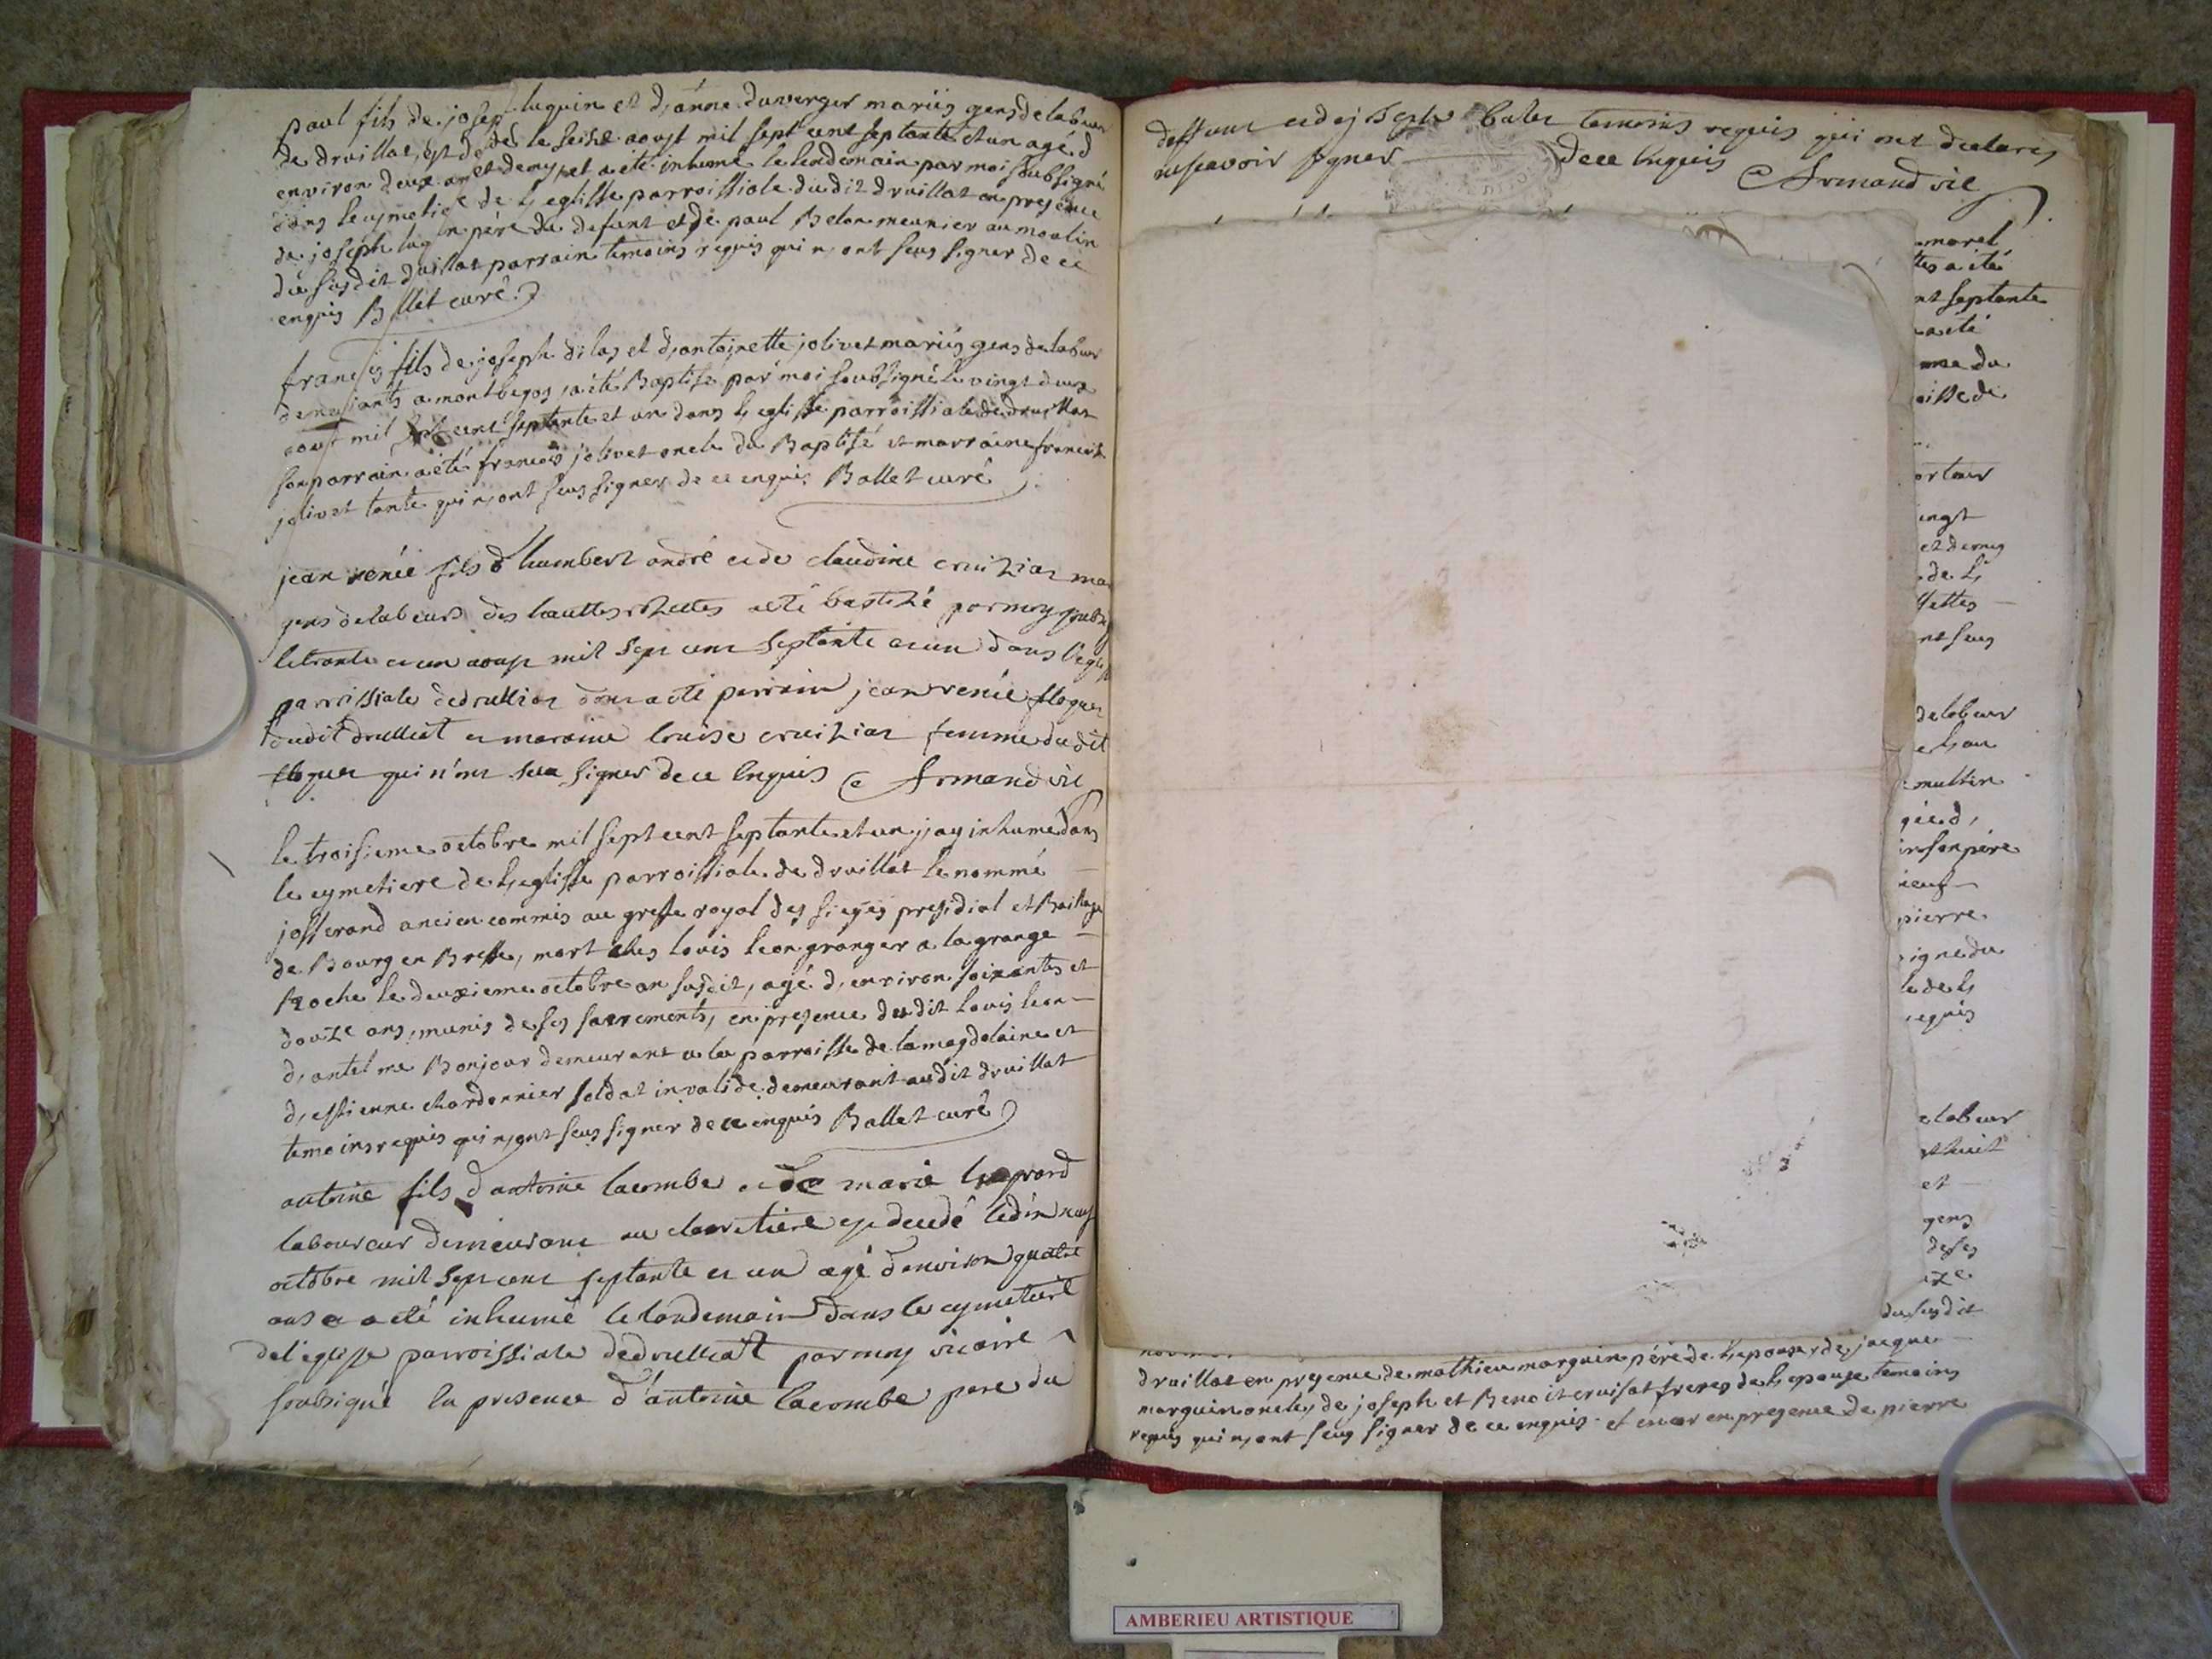 paul fils de joseph luquin et d,anne duverger mariés gens de labeur
de druillat, est dedé le seize aoust mil sept cent septante et un agé d
environ deux an et demy, et a eté inhumé le lendemain par moi soubsigné
dans le cymetiere de l,eglisse parroissiale du dit druillat en presence
de joseph luquin père du defunt et de paul Belon meunier au moulin
du susdit druillat parrain temoins requis qui n,ont seus signer de ce
enquis Ballet curé
francois fils de joseph dilas et d,antoinette jolivet mariés gens de labeur
demeurants a montbegos a été Baptisé par moi soubsigné le vingt deux
aoust mil sept cent septante et un dans l,eglisse parroissiale de druillat
son parrain a été francois jolivet oncle du Baptisé et marraine francoise
jolivet tante qui n,ont seus signer de ce enquis Ballet curé
jean renée fils d'humbert andré et de claudine cruiziat
gens de labeurs des hauttes été baptizé par moy
le trante et un aoust mil sept cent septante et un dans l'eglise
parroissiale de drulliat dont a eté parrain jean renée floquet
dudit drulliat et maraine louise cruiziat femme dudit
floquet qui n'ont seu signer de ce enquis Armand vic
le troisieme octobre mil sept cent septante et un j,ay inhumé dans
le cymetiere de l,eglisse parroissiale de druillat le nommé
josserand ancien commis au greffe royal des sieges presidial et Bailliage
de Bourg en Bresse, mort ches louis leon granger a la grange
Roche le deuxieme octobre an susdit, agé d,environ soixantes et
douze ans, munis de ses sacrements, en presence du dit louis leon
d,antelme Bonjour demeurant a la parroisse de la magdelaine et
d,estienne chardonnier soldat invalide demeurant audit druillat
temoins requis qui n,ont seus signer de ce enquis Ballet curé
antoine fils d'antoine lacombe et de marie
laboureur demeurant au est decedé le dix neuf
octobre mil sept cent septante et un agé d'environ quatre
ans a eté inhumé le landemain dans le cymetiere
de l'eglisse parroissiale de drulliat par moy vicaire
soubsigné en presence d'antoine lacombe pere du
deffunt et de joseph temoins requis qui ont declarés
ne scavoir signer de ce enquis Armand vic
morel
tes a été
nt septante
a été
me du
oisse de
ingt
et demy
de l,
lettes
nt seus
de labeur
gée d,
ir son père
neuf
pierre
igne du
le de l,
requis
e labeur
et huit
et
gens
de ses
ize
du susdit
druillat en presence de mathieu marguin père de l,epouse, de jacque
marguin oncle, de joseph et Benoit cruisat freres de l,epouse temoins
requis qui n,ont seus signer de ce enquis et encor en presence de pierre
AMBERIEU ARTISTIQUE